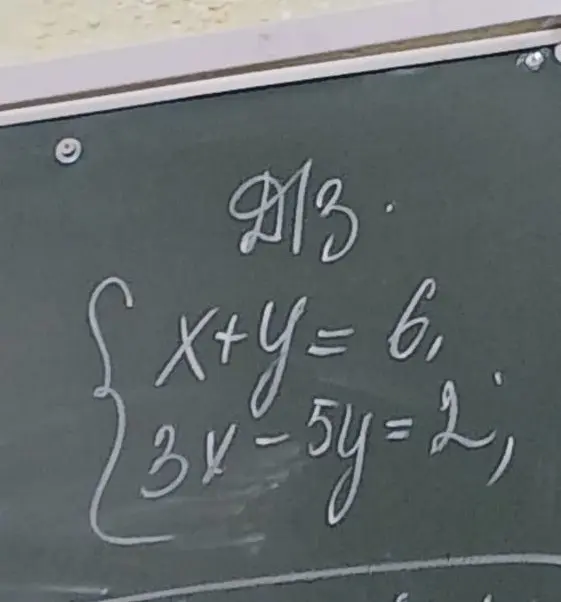 Д/З.
x+y=6,
3x-5y=2;